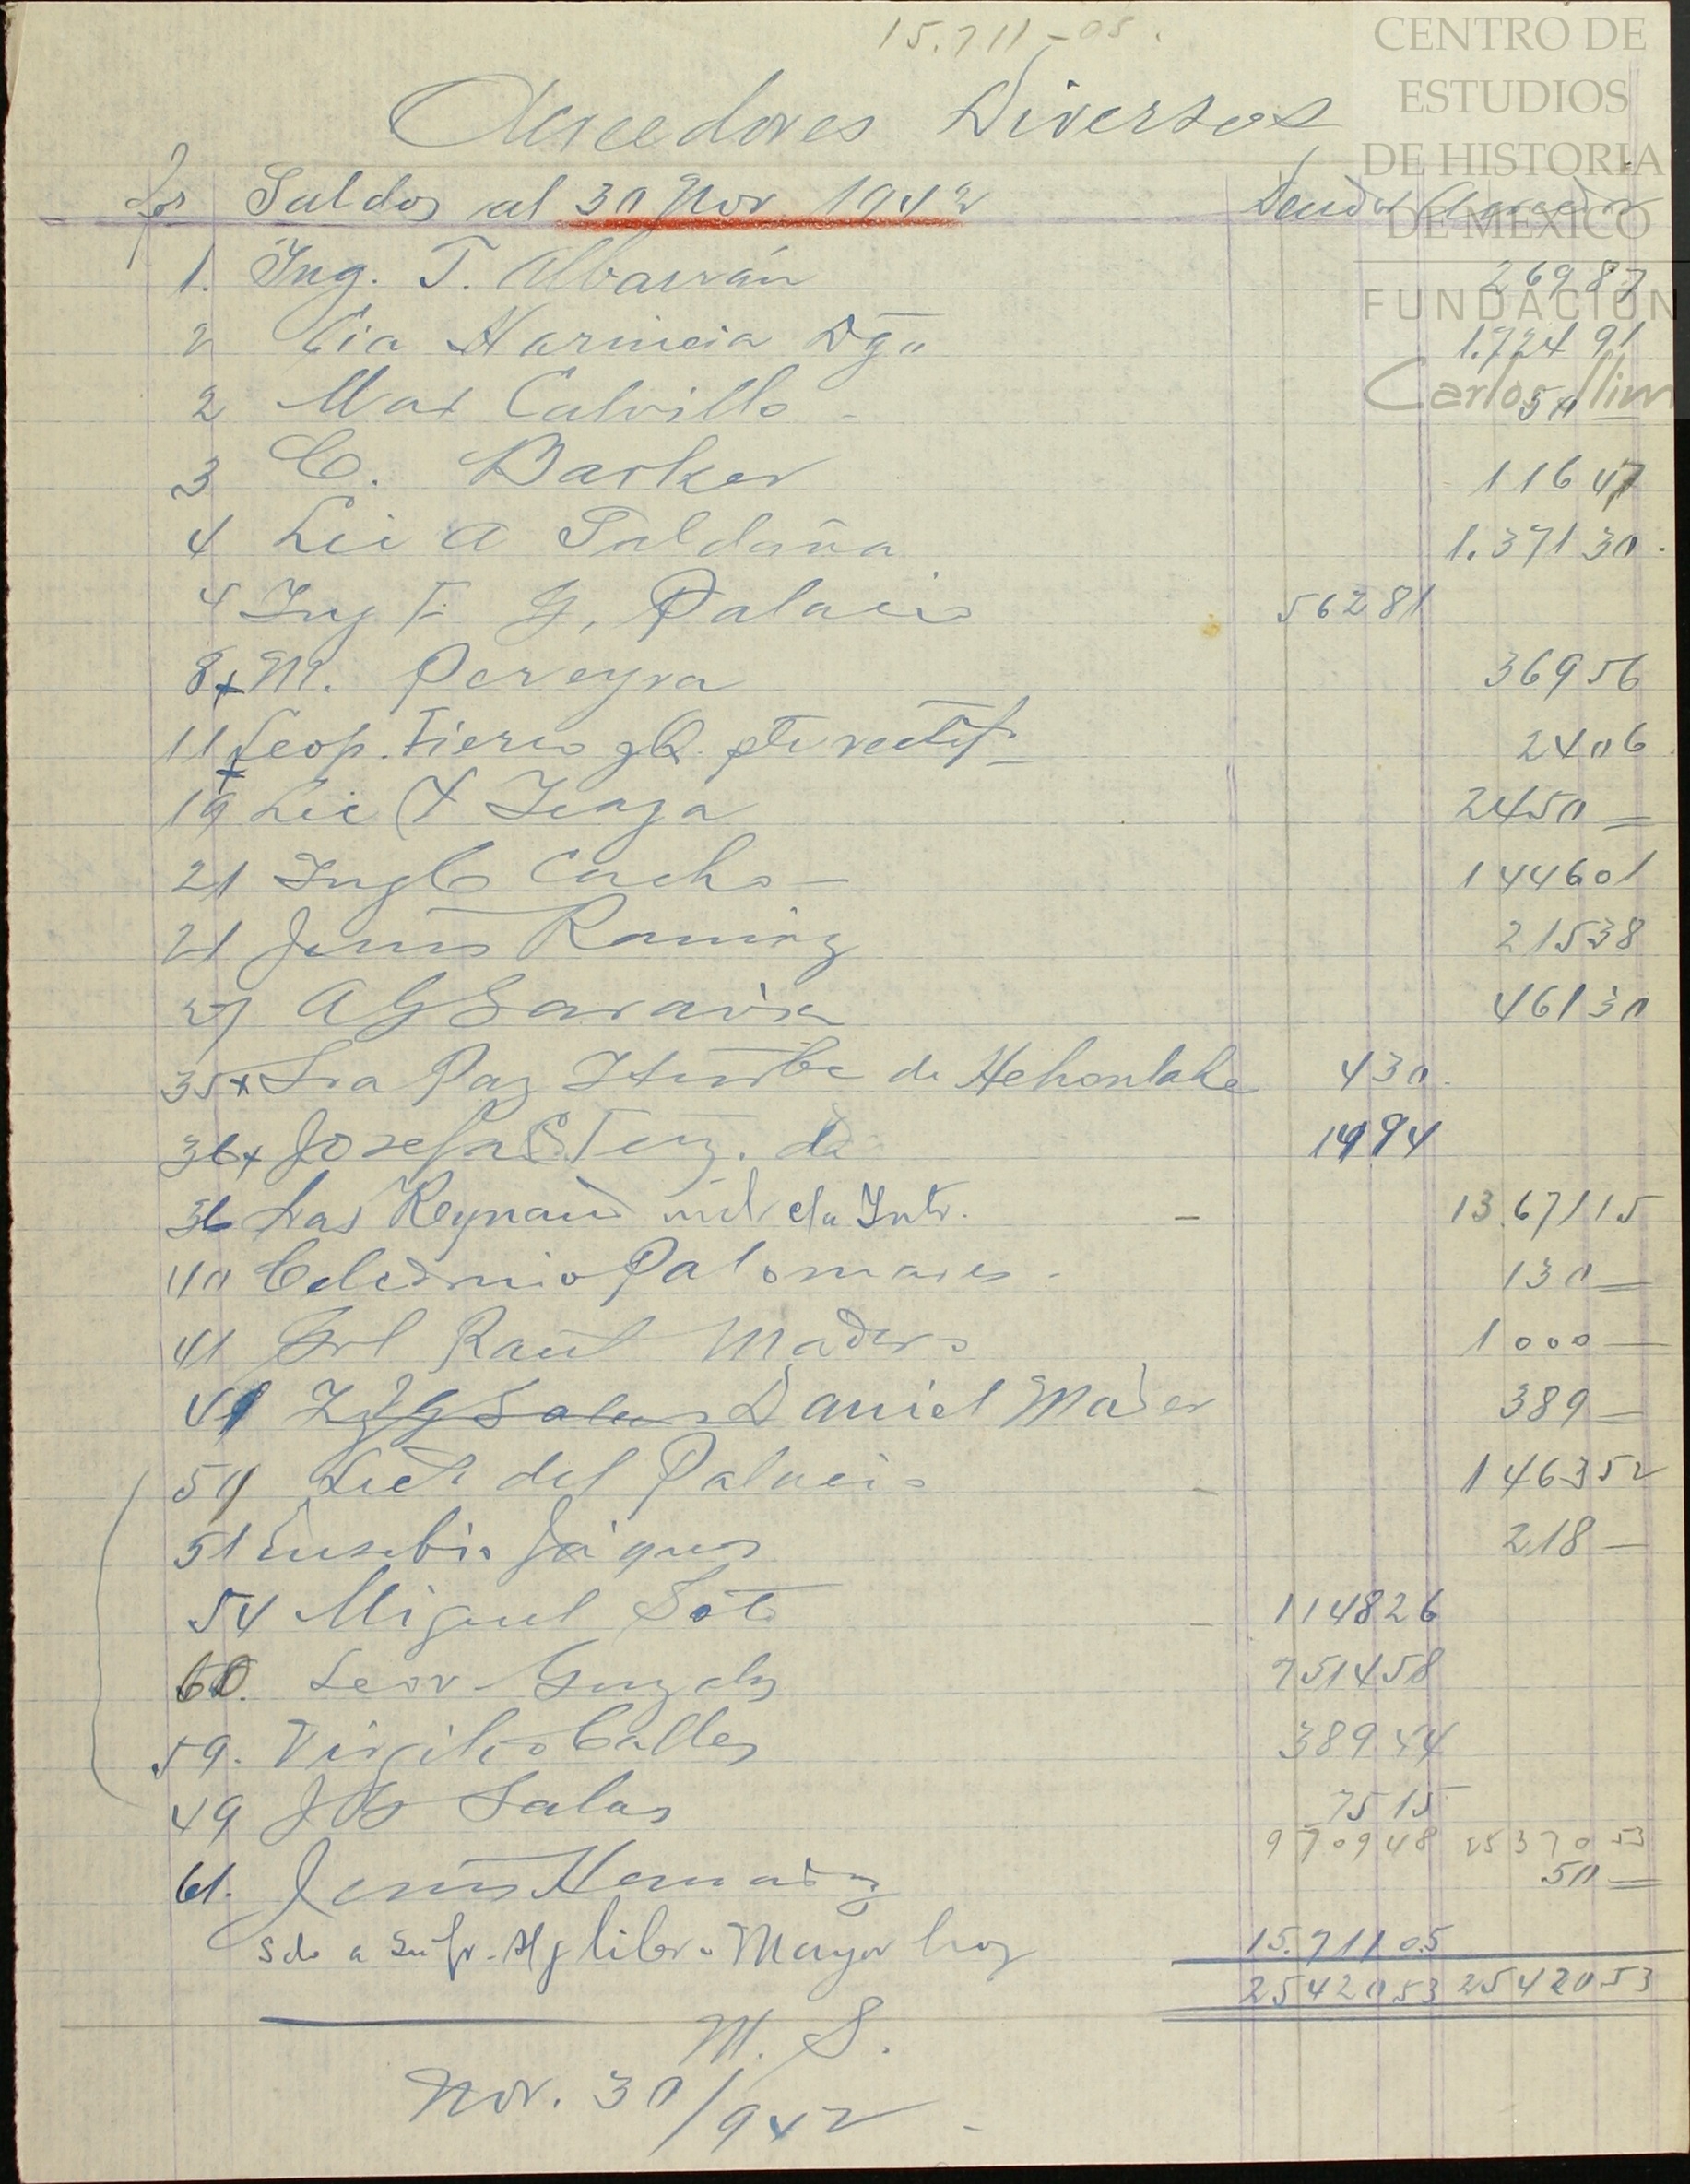 15.711-05.
Acreedores Diversos
fos Saldos al 30 Nov 1942 Deudor Acreedor
1. Ing. T. Albarrán 269 87
2 Cia Harinera Dgo 1.724 91
2 Max Calvillo - 50 =
3 C. Barker 116 47
4 Lic A Saldaña 1.371 30.
4 Ing F. G. Palacio 562 81
8 x M. Pereyra 369 56
11 Leop. Fierro gl. pte rectif- 24 06
19 x Lic Y Zenga 2450 =
21 Ing C Cacho - 1446 01
21 Jesús Ramirez 215 38
27 A G Saravia 461 30
35 x Sra Paz Iturbe de Hehonlahe 430.
36 x Josefa S. Terz. de 19 94
36 Las Reynas min de Intr. - 13.671 15
40 Celedonio Palomares - 130 =
41 Grl Raúl Madero 1000 -
41 I G Salas Daniel Mader 389 =
50 Suc. del Palacio - 1463 52
51 Eusebio Jáques 218 -
54 Miguel Soto - 1148 26
60. Leov Gonzalez 7514 58
59. Virgilio Calles 389 44
49 J G Salas 75 15
9709 48 25370 53
61. Jesús Hernandez 50 =
Sdo a libro Mayor hoy 15.711 05
25420 53 25420 53
M. S.
Nov. 30/942 -
CENTRO DE
ESTUDIOS
DE HISTORIA
DE MEXICO
FUNDACIÓN
Carlos Slim